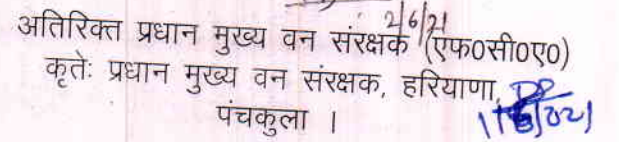 2/6/21
अतिरिक्त प्रधान मुख्य वन संरक्षक (एफ0सी0ए0)
कृतेः प्रधान मुख्य वन संरक्षक, हरियाणा,
पंचकुला ।